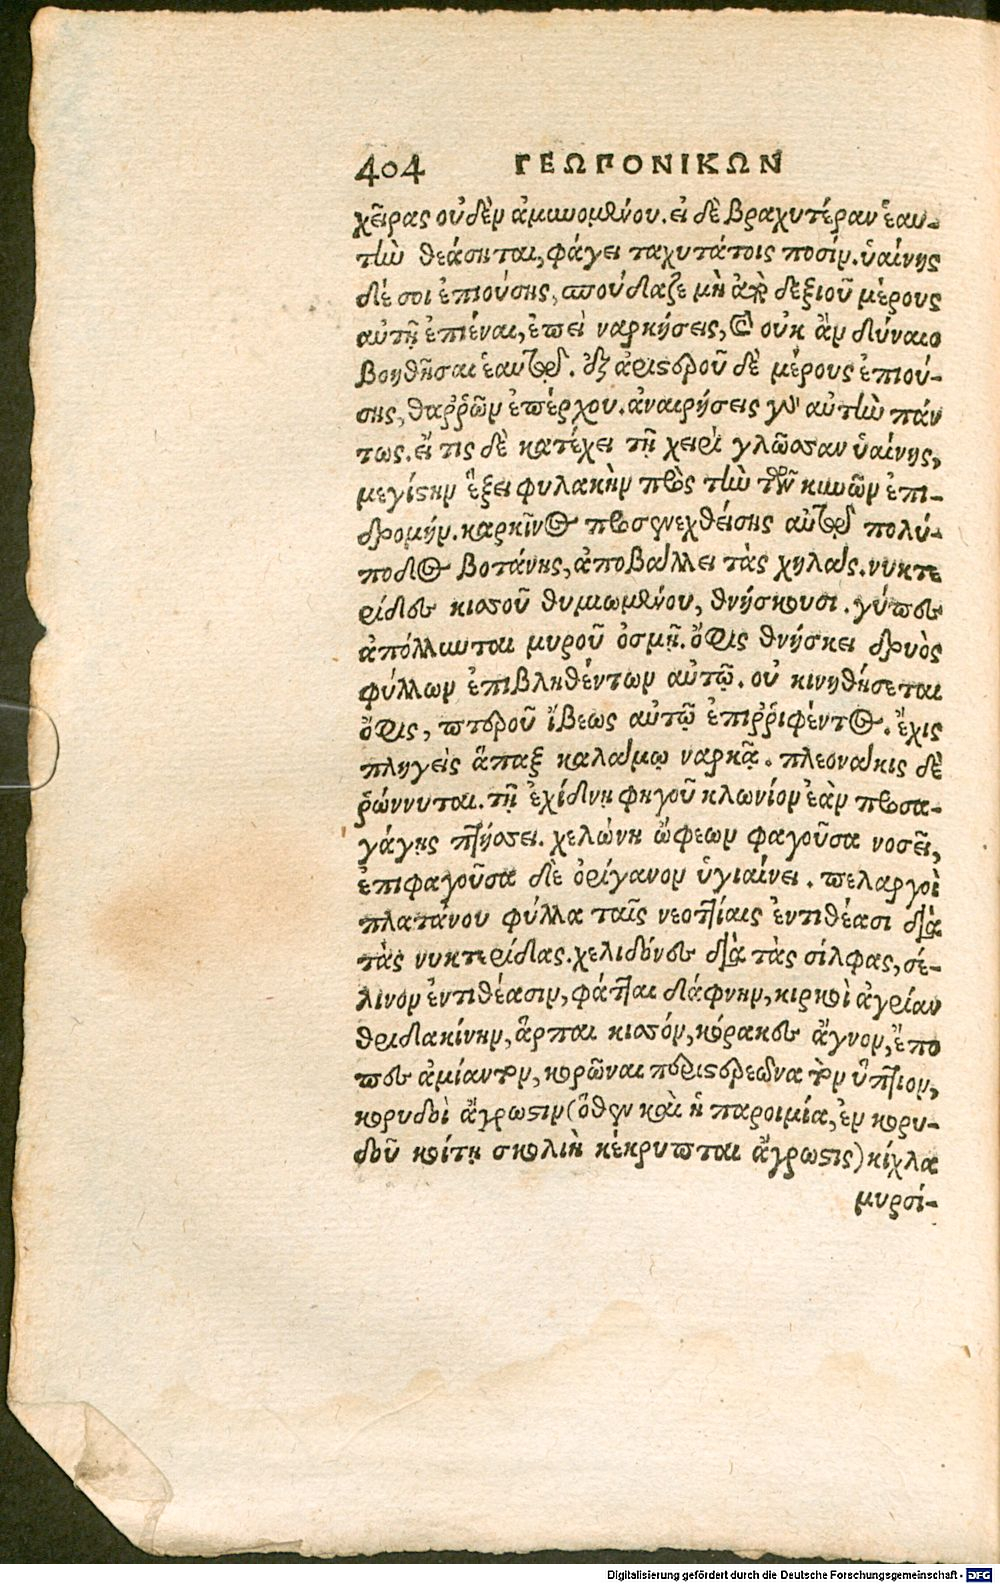 404 ΓΕΩΠΟΝΙΚΩΝ
χεῖρας οὐδὲν ἀμυνομένου. εἰ δὲ βραχυτέραν ἑαυ-
τὴν θεάσηται, φάγει ταχυτάτοις ποσίν. ὑαίνης
δέ σοι ἐπιούσης, σπούδαζε μὴ ἀπὸ δεξιοῦ μέρους
αὐτῇ ἐπιέναι, ἐπεὶ ναρκήσεις, καὶ οὐκ ἂν δύναιο
βοηθῆσαι ἑαυτῷ. ἐξ ἀριστεροῦ δὲ μέρους ἐπιού-
σης, θαῤῥῶν ἐπέρχου. ἀναιρήσεις γὰρ αὐτὴν πάν
τως. εἴ τις δὲ κατέχει τῇ χειρὶ γλῶσσαν ὑαίνης,
μεγίστην ἕξει φυλακὴν πρὸς τὴν τῶν κυνῶν ἐπι-
δρομήν. καρκῖνος προσενεχθείσης αὐτῷ πολύ-
ποδος βοτάνης, ἀποβάλλει τὰς χηλάς. νυκτε
ρίδες κισσοῦ θυμιωμένου, θνήσκουσι. γύπες
ἀπόλλυται μυροῦ ὀσμῇ. ὄφις θνήσκει δρυὸς
φύλλων ἐπιβληθέντων αὐτῷ. οὐ κινηθήσεται
ὄφις, πτεροῦ ἴβεως αὐτῷ ἐπιῤῥιφέντος. ἔχις
πληγεὶς ἅπαξ καλάμῳ ναρκᾷ. πλεονάκις δὲ
ῥώννυται. τῇ ἐχίδνῃ φηγοῦ κλωνίον ἐὰν προσα-
γάγῃς πτήσσει. χελώνη ὤφεων φαγοῦσα νοσεῖ,
ἐπιφαγοῦσα δὲ ὀρίγανον ὑγιαίνει. πελαργοὶ
πλατάνου φύλλα ταῖς νεοττίαις ἐντιθέασι διὰ
τὰς νυκτερίδας. χελιδόνες διὰ τὰς σίλφας, σέ-
λινον ἐντιθέασιν, φάτται δάφνην, κιρκοὶ ἀγρίαν
θριδακίνην, ἅρπαι κισσόν, κόρακες ἄγνον, ἔπο
πες ἀμίαντον, κορῶναι περιστερεῶνα τὸν ὕπτιον,
κορυδοὶ ἄγρωστιν (ὅθεν καὶ ἡ παροιμία, ἐν κορυ-
δοῦ κοίτῃ σκολιὴ κέκρυπται ἄγρωστις) κίχλα
μυρσί-
Digitalisierung gefördert durch die Deutsche Forschungsgemeinschaft - DFG